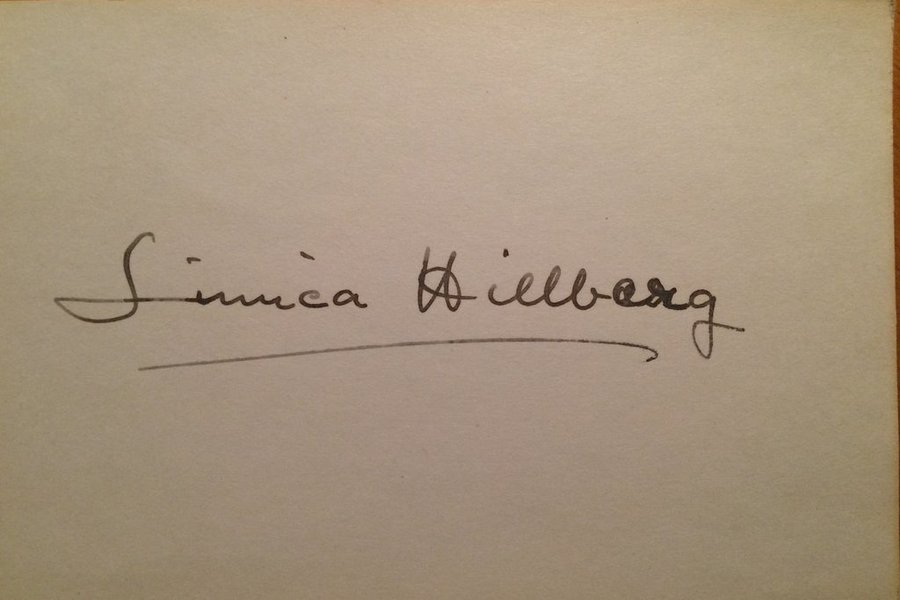 Sinnica Hillberg